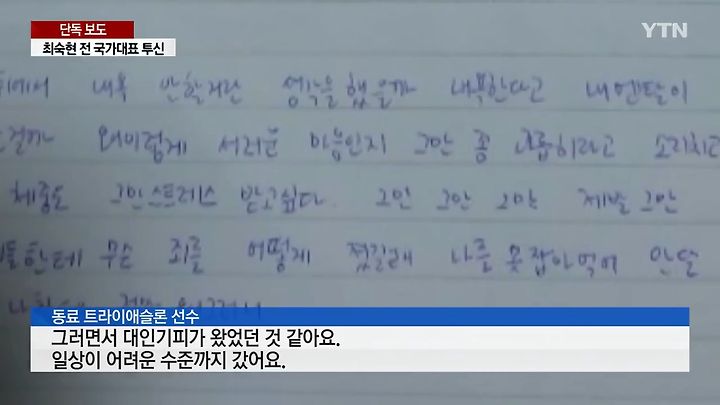 단독 보도
최숙현 전 국가대표 투신
YTN
내욕 안할거란 생각을 했을까 내욕한다고 내멘탈이
왜이렇게 서러운 마음인지 그만 좀 괴롭히라고 소리치고
체중도 그만 스트레스 받고싶다. 그만 그만 그만 제발 그만
한테 무슨 죄를 어떻게 졌길래 나를 못잡아먹어 안달
동료 트라이애슬론 선수
그러면서 대인기피가 왔었던 것 같아요.
일상이 어려운 수준까지 갔어요.